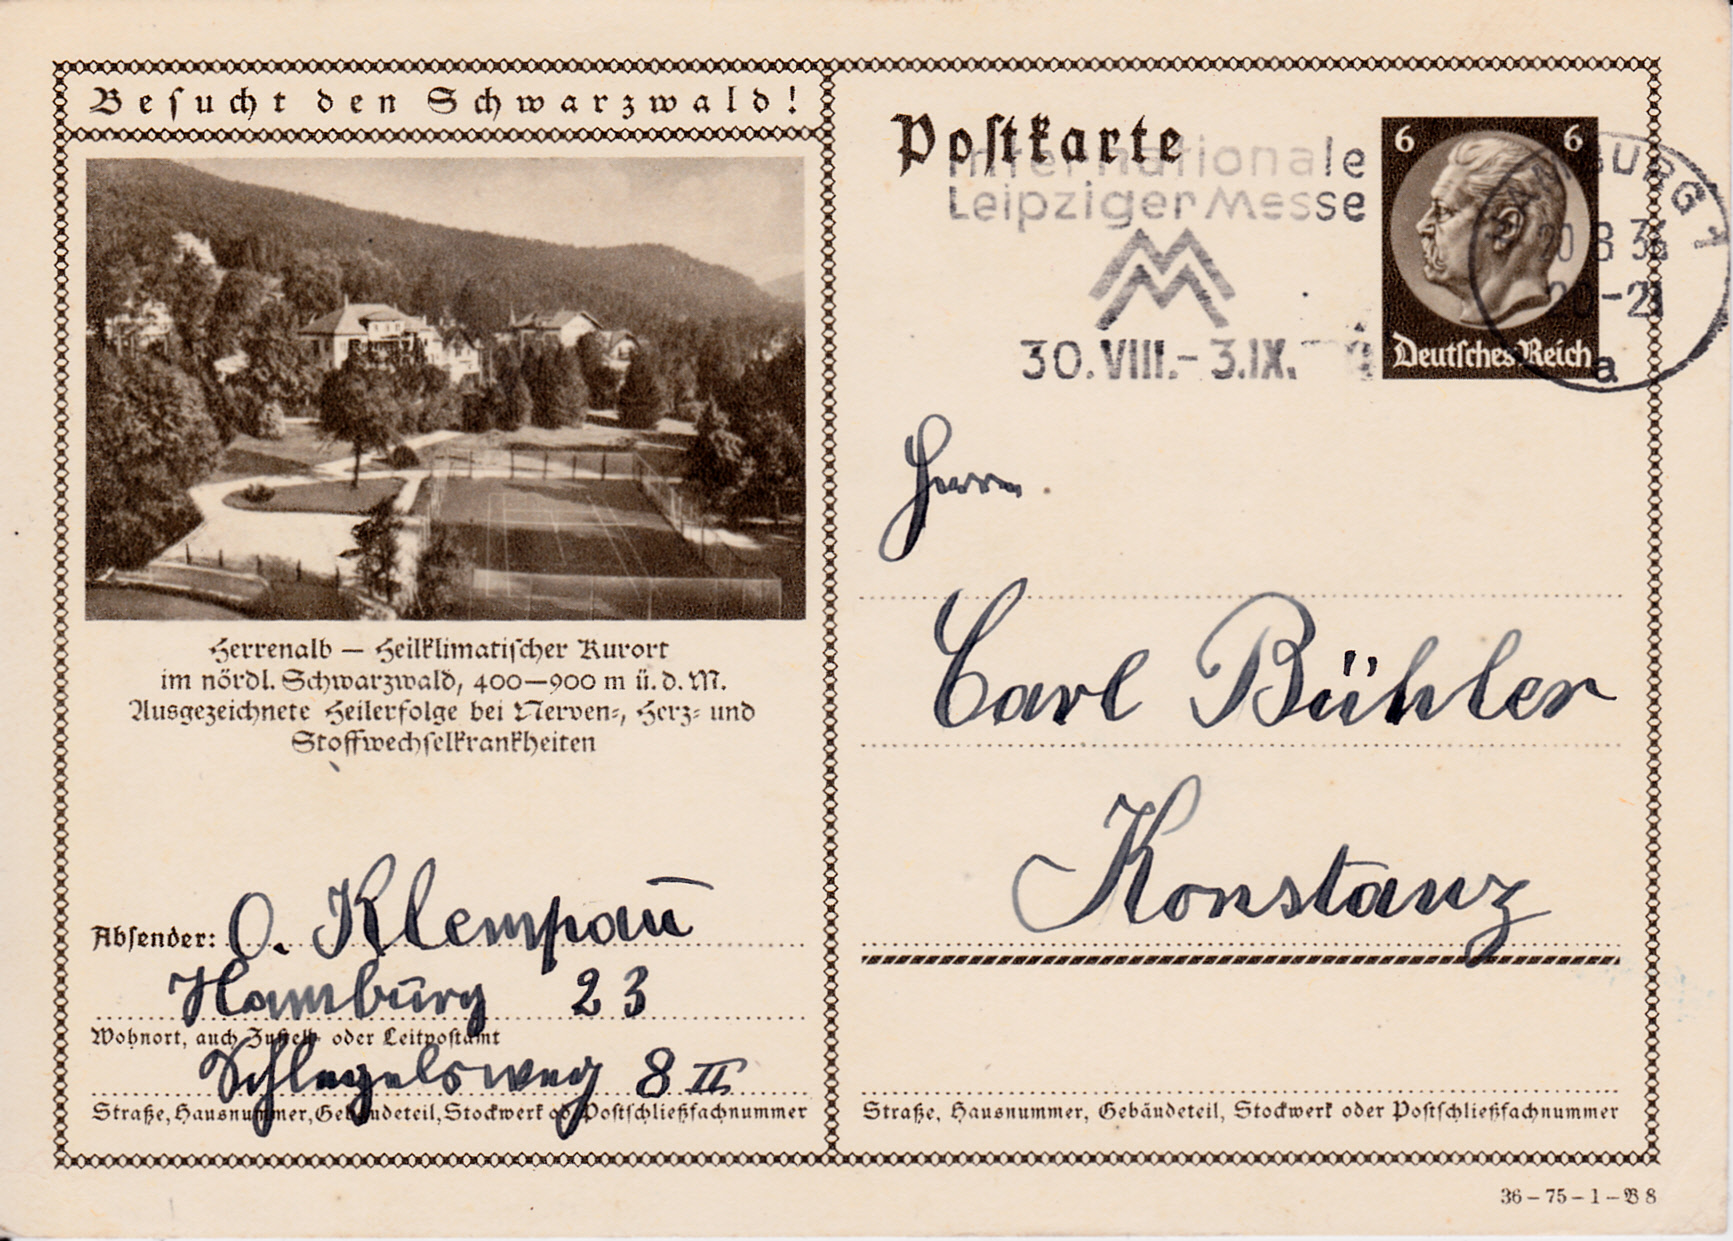 Besucht den Schwarzwald!
Herrenalb — Heilklimatischer Kurort
im nördl. Schwarzwald, 400—900 m ü. d. M.
Ausgezeichnete Heilerfolge bei Nerven-, Herz- und
Stoffwechselkrankheiten
Absender: O. Klempau
Hamburg 23
Wohnort, auch Zustell- oder Leitpostamt
Schlegelsweg 8 II
Straße, Hausnummer, Gebäudeteil, Stockwerk od. Postschließfachnummer
Postkarte
Internationale
Leipziger Messe
30. VIII. - 3. IX.
6 6
Deutsches Reich
HAMBURG 1
20-21
a
Herrn
Carl Bühler
Konstanz
Straße, Hausnummer, Gebäudeteil, Stockwerk oder Postschließfachnummer
36 – 75 – 1 – B 8